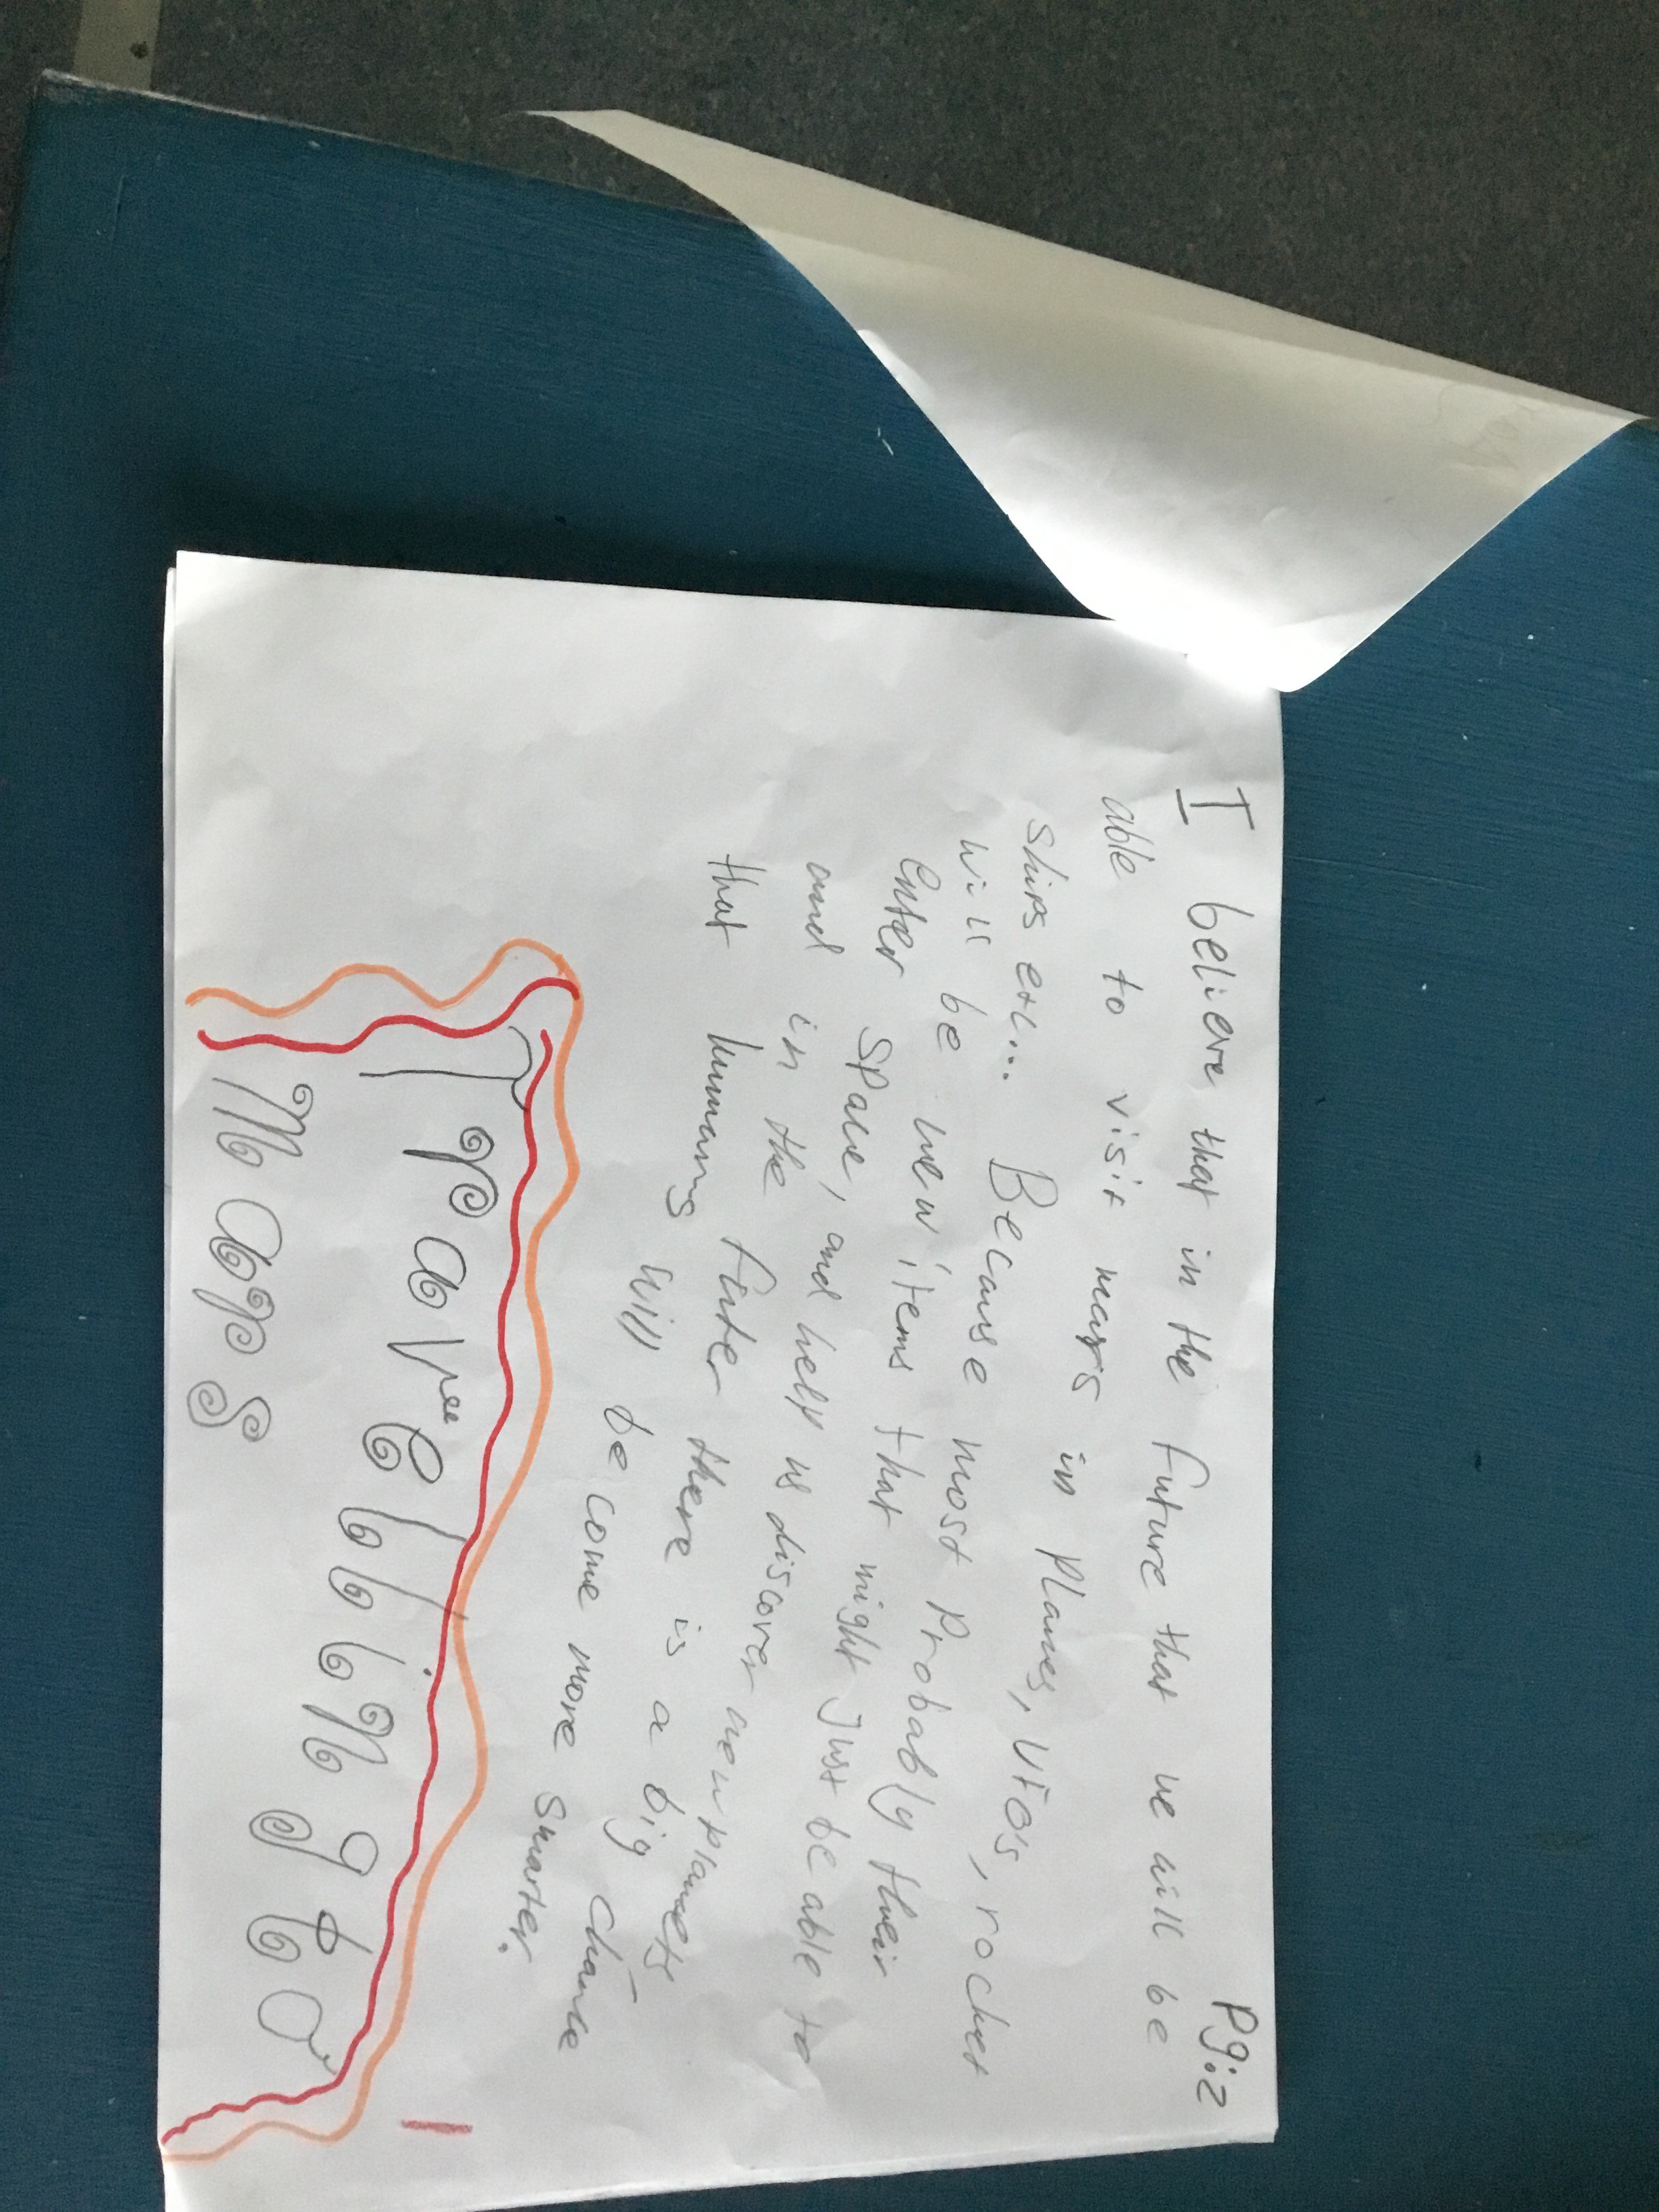 Pg:2
I believe that in the future that we will be
able to visit mars in Planes, UFO's, rocket
ships etc... Because most Probably their
will be new items that might Just be able to
enter space, and help us discover new planets
and in the futer there is a big chance
that humans will become more smarter.
Travelling to
Maps